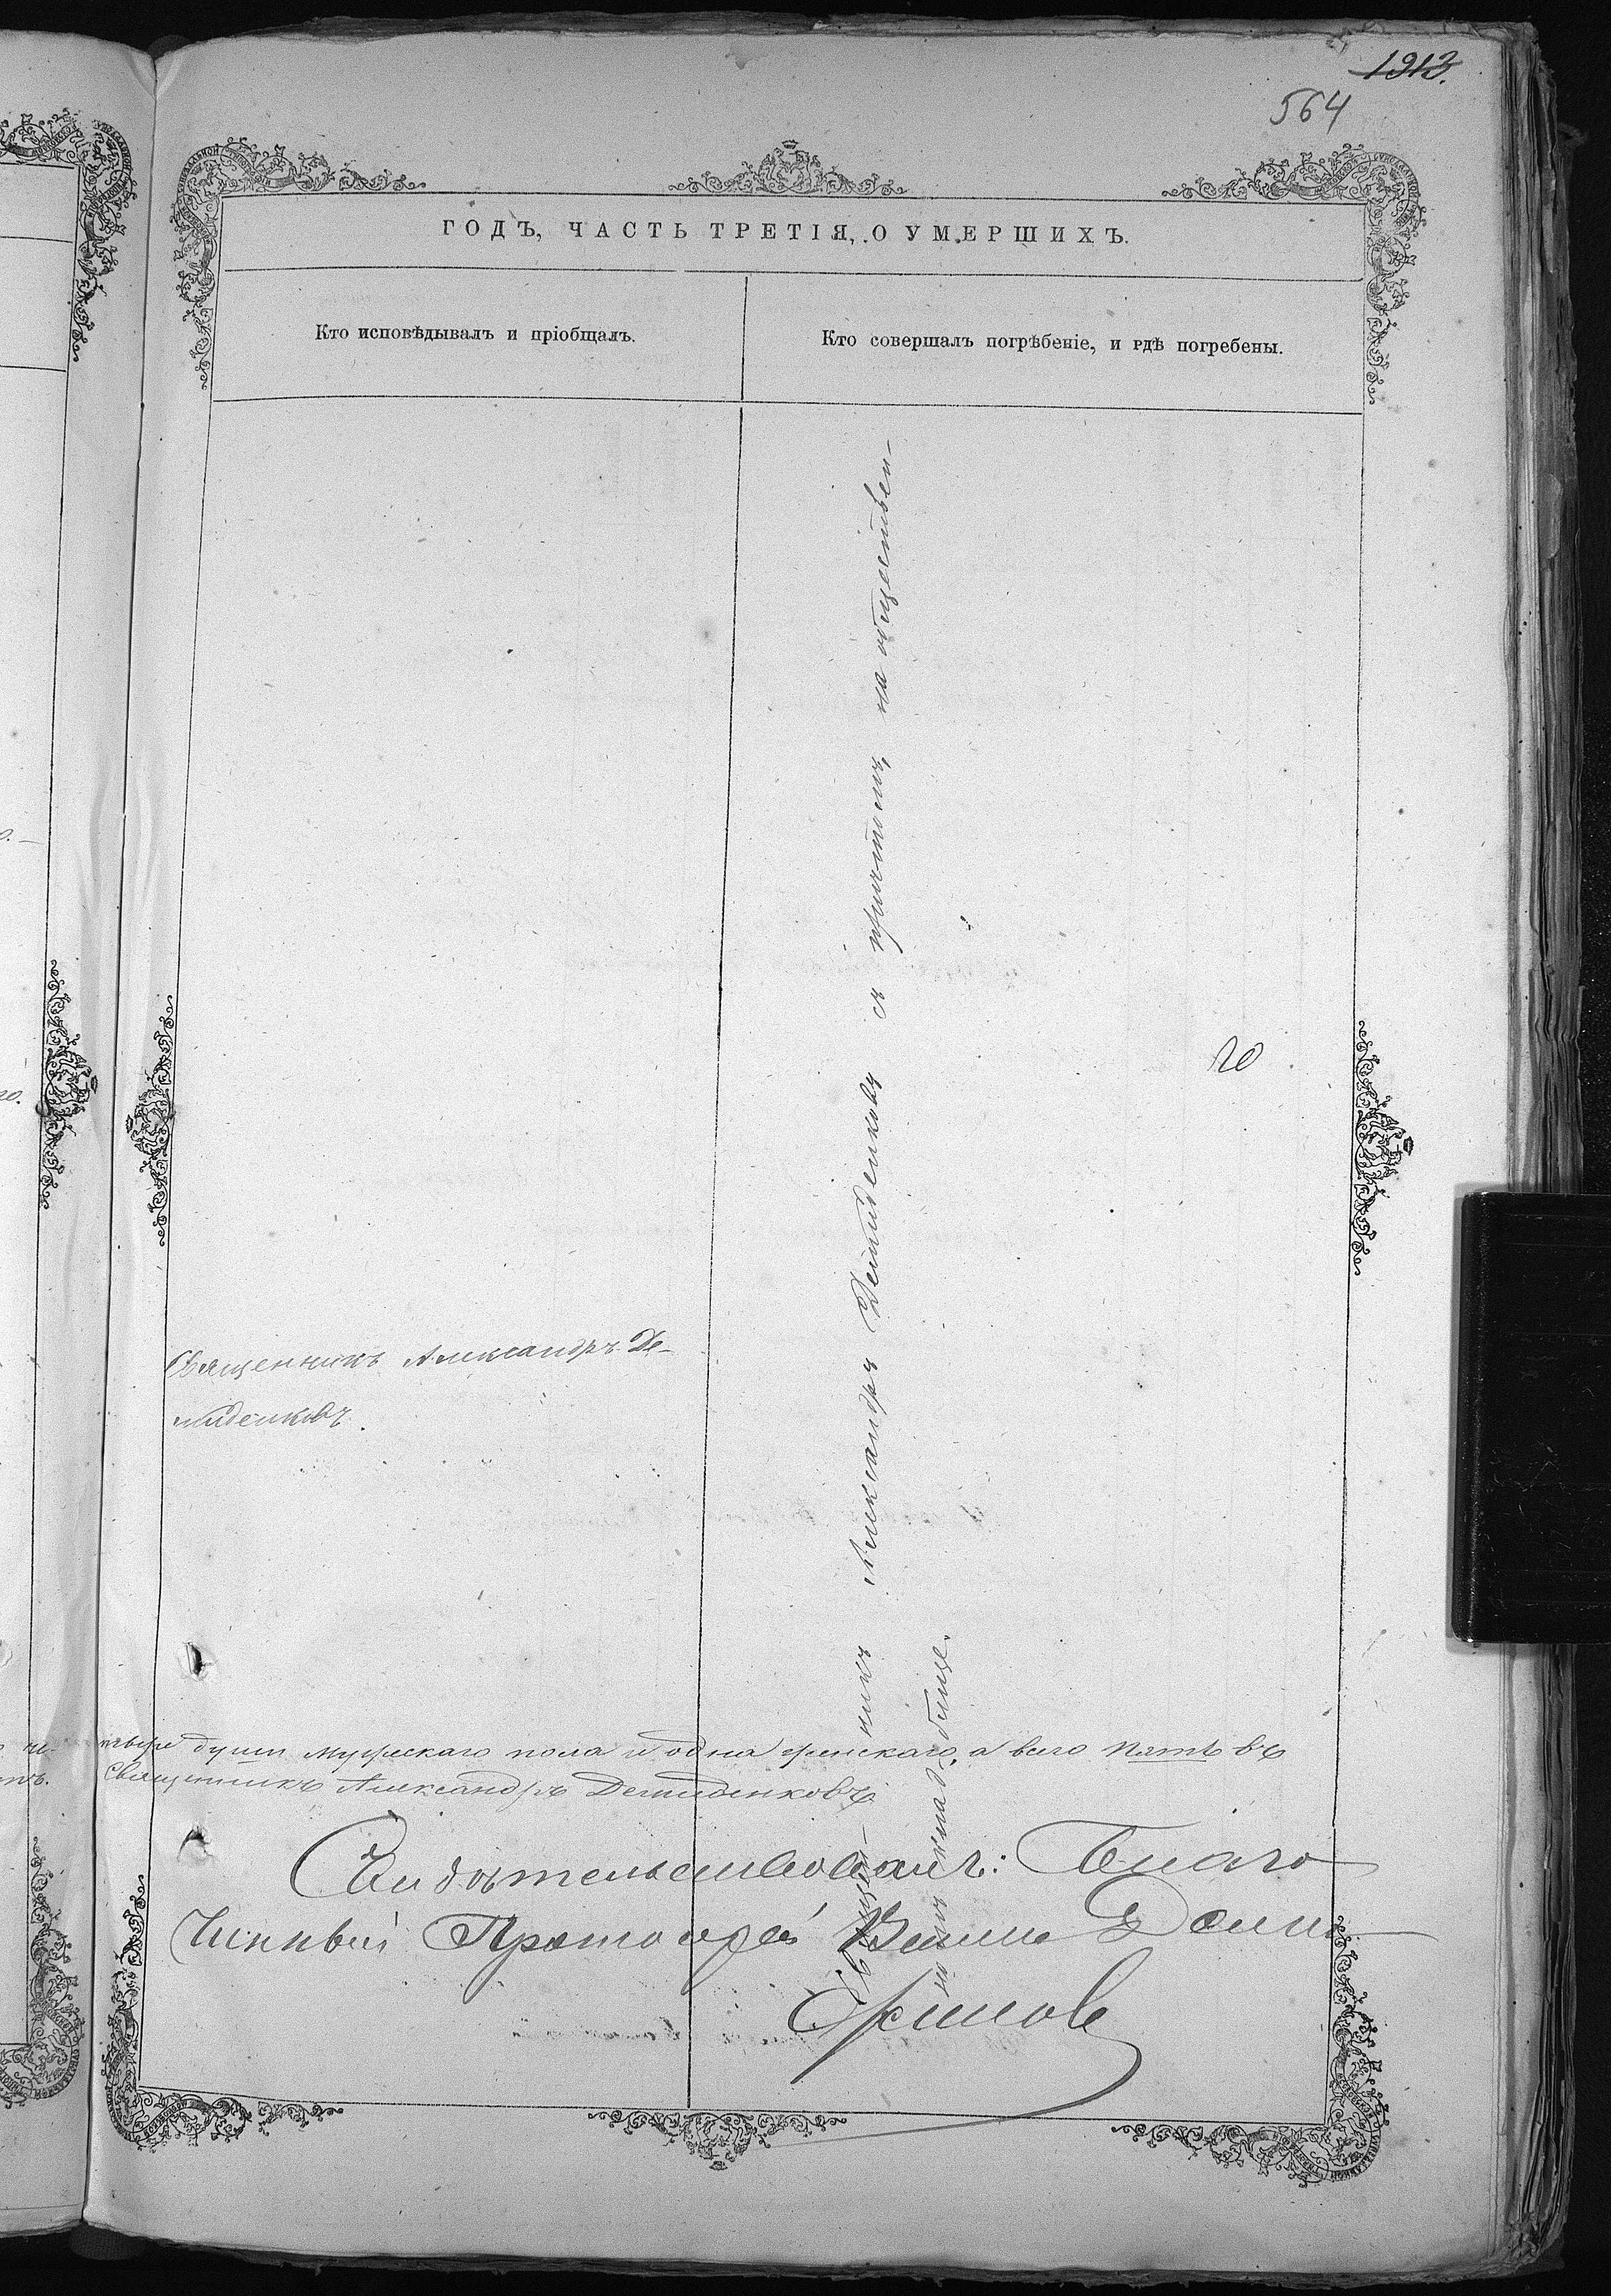 1913.
564
ГОДЪ, ЧАСТЬ ТРЕТІЯ, О УМЕРШИХЪ.
Кто исповѣдывалъ и пріобщалъ.
Кто совершалъ погрѣбеніе, и гдѣ погребены.
Священникъ Александръ Де-
миденковъ.
Священникъ Александръ Демиденковъ съ причтомъ, на обществен-
номъ кладбище.
20
тыре души мужескаго пола и одна женскаго, а всего пять въ
Священникъ Александръ Демиденковъ
Свидѣтельствовалъ: Благо
чинный Протоіерей